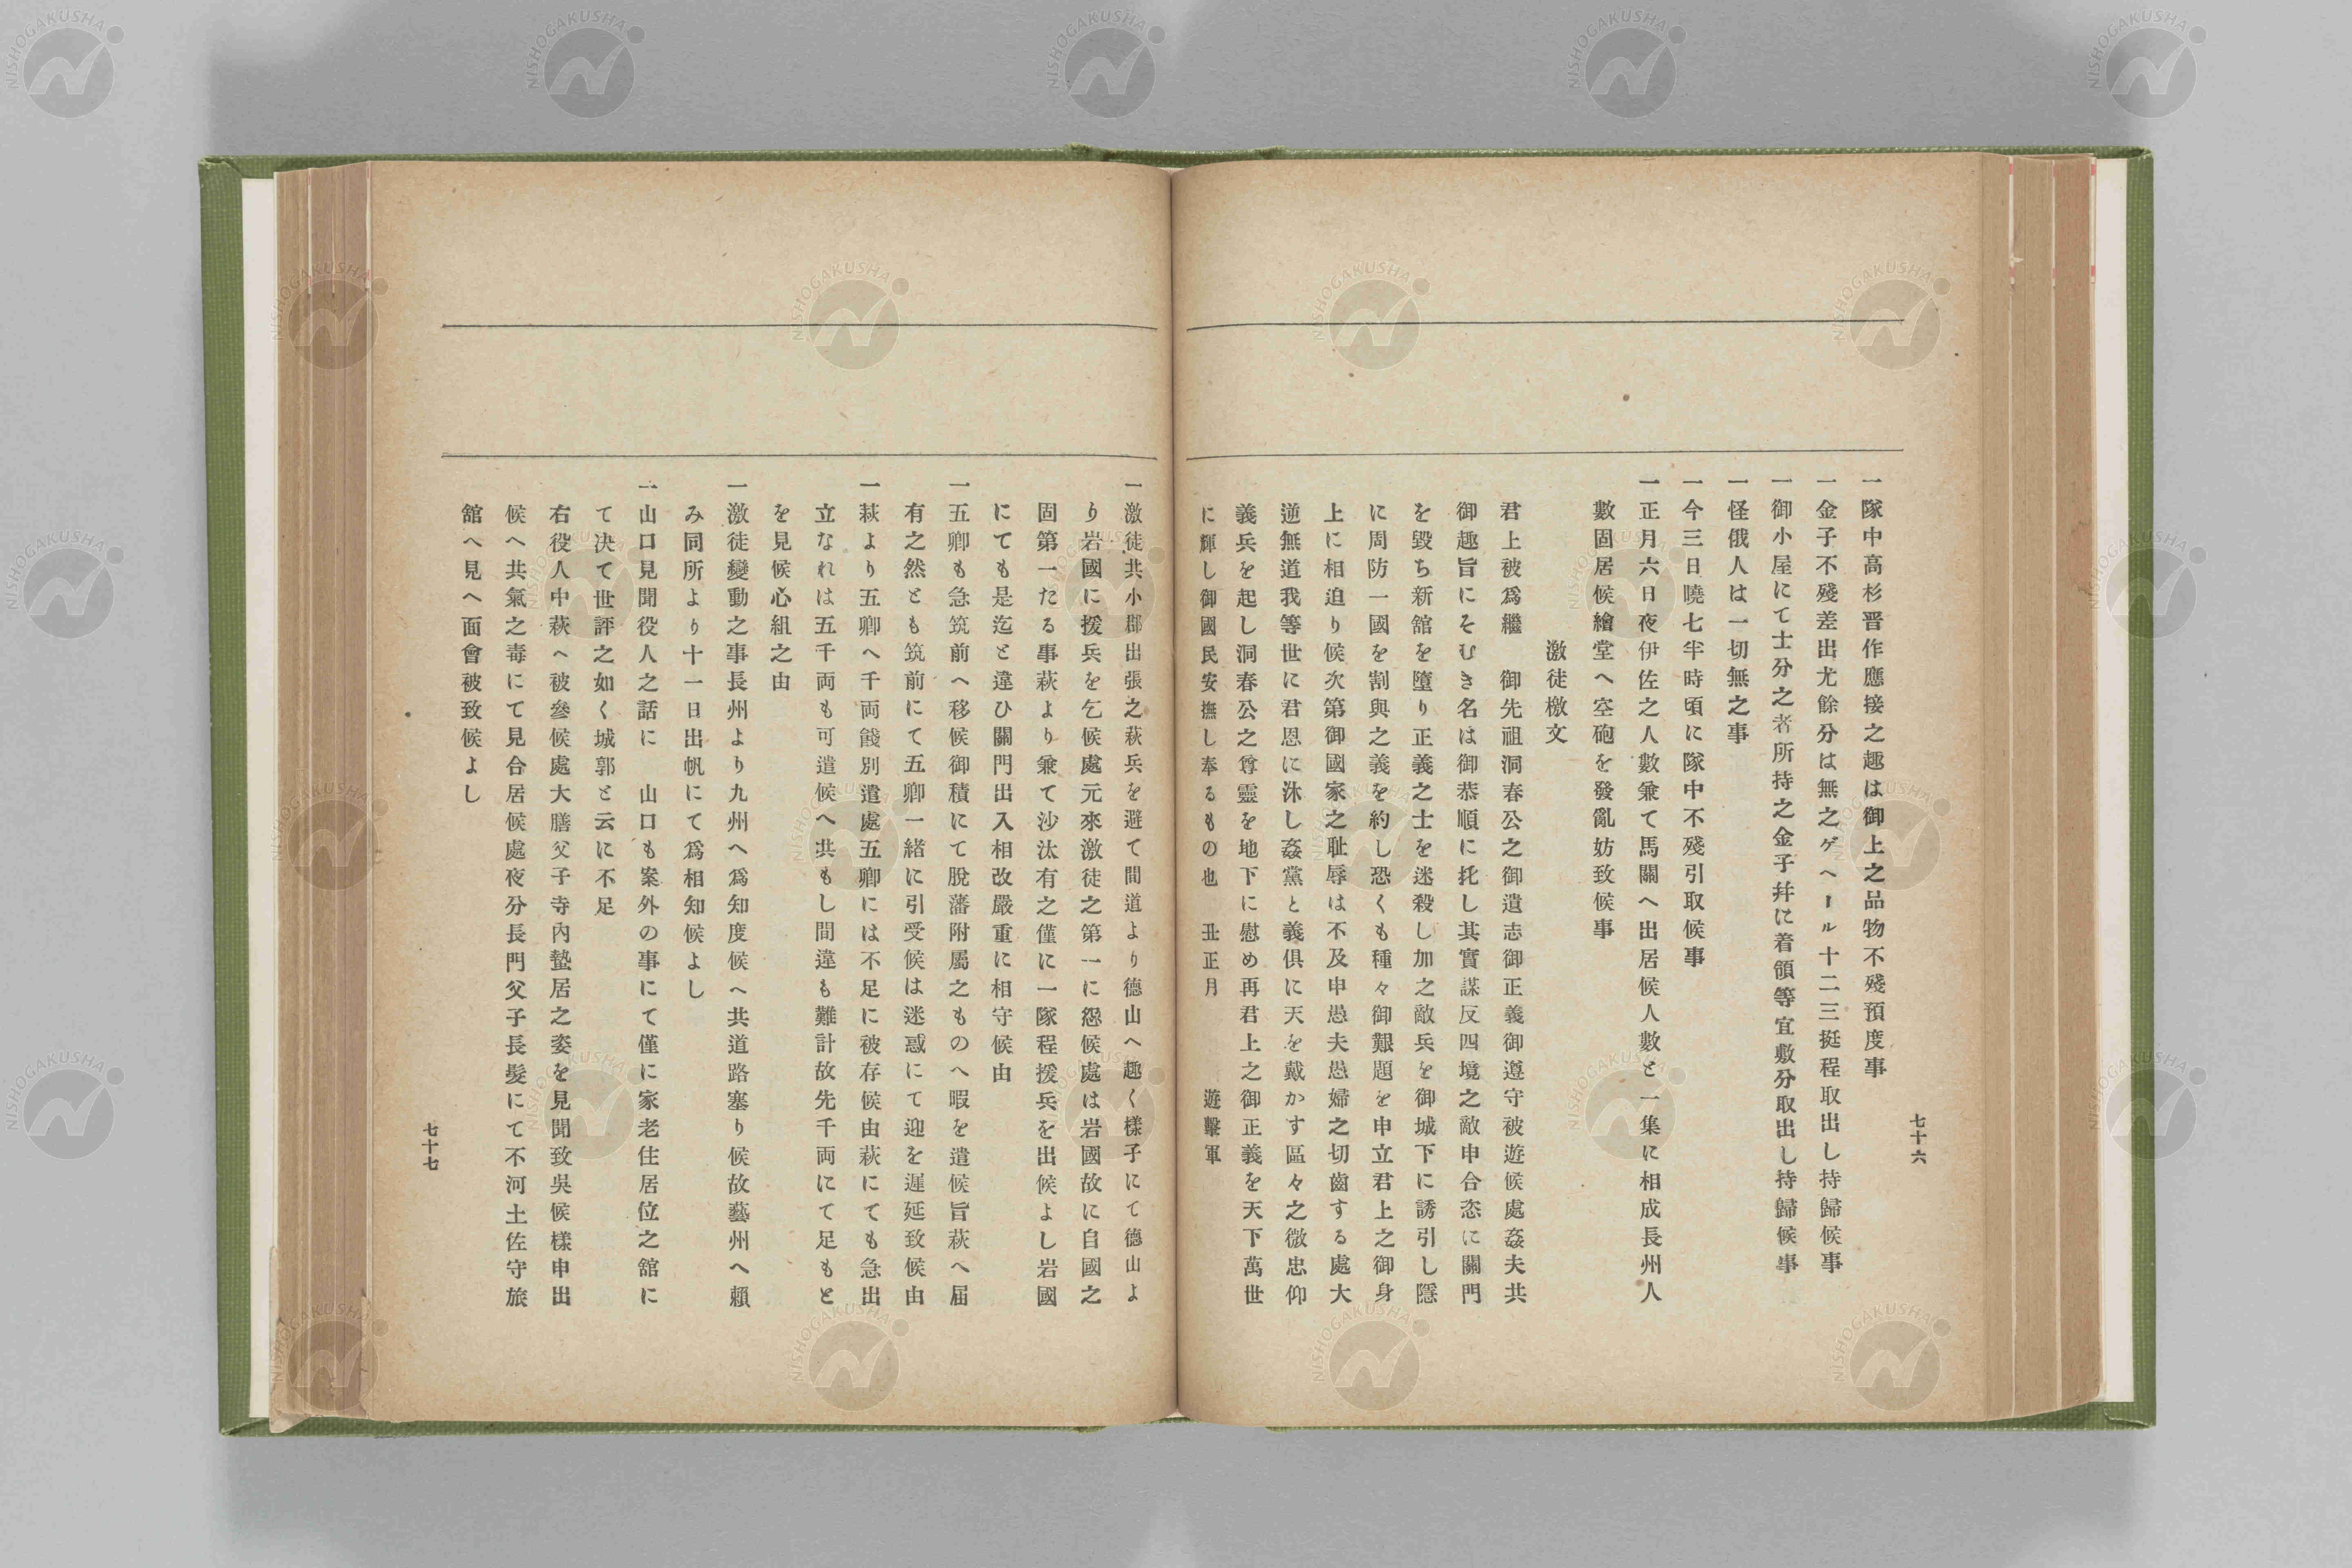 一隊中高杉晋作應接之趣は御上之品物不殘預度事
一金子不殘差出尤餘分は無之ゲヘール十二三挺程取出し持歸候事
一御小屋にて士分之者所持之金子幷に着領等宜敷分取出し持歸候事
一怪俄人は一切無之事
一今三日曉七半時頃に隊中不殘引取候事
一正月六日夜伊佐之人數兼て馬關へ出居候人數と一集に相成長州人
數固居候繪堂へ空砲を發亂妨致候事
激徒檄文
君上被爲繼　御先祖洞春公之御遺志御正義御遵守被遊候處姦夫共
御趣旨にそむき名は御恭順に托し其實謀反四境之敵申合恣に關門
を毀ち新舘を墮り正義之士を迷殺し加之敵兵を御城下に誘引し隱
に周防一國を割與之義を約し恐くも種々御艱題を申立君上之御身
上に相迫り候次第御國家之耻辱は不及申愚夫愚婦之切齒する處大
逆無道我等世に君恩に沐し姦黨と義俱に天を戴かす區々之微忠仰
義兵を起し洞春公之尊靈を地下に慰め再君上之御正義を天下萬世
に輝し御國民安撫し奉るもの也　丑正月　遊擊軍
七十六
一激徒共小郡出張之萩兵を避て間道より德山へ趣く樣子にて德山よ
り岩國に援兵を乞候處元來激徒之第一に怨候處は岩國故に自國之
固第一たる事萩より兼て沙汰有之僅に一隊程援兵を出候よし岩國
にても是迄と違ひ關門出入相改嚴重に相守候由
一五卿も急筑前へ移候御積にて脫藩附屬之ものへ暇を遣候旨萩へ屆
有之然とも筑前にて五卿一緒に引受候は迷惑にて迎を遲延致候由
一萩より五卿へ千両餞別遣處五卿には不足に被存候由萩にても急出
立なれは五千両も可遣候へ共もし間違も難計故先千両にて足もと
を見候心組之由
一激徒變動之事長州より九州へ爲知度候へ共道路塞り候故藝州へ賴
み同所より十一日出帆にて爲相知候よし
一山口見聞役人之話に　山口も案外の事にて僅に家老住居位之舘に
て决て世評之如く城郭と云に不足
右役人中萩へ被參候處大膳父子寺內蟄居之姿を見聞致吳候樣申出
候へ共氣之毒にて見合居候處夜分長門父子長髮にて不河土佐守旅
舘へ見へ面會被致候よし
七十七